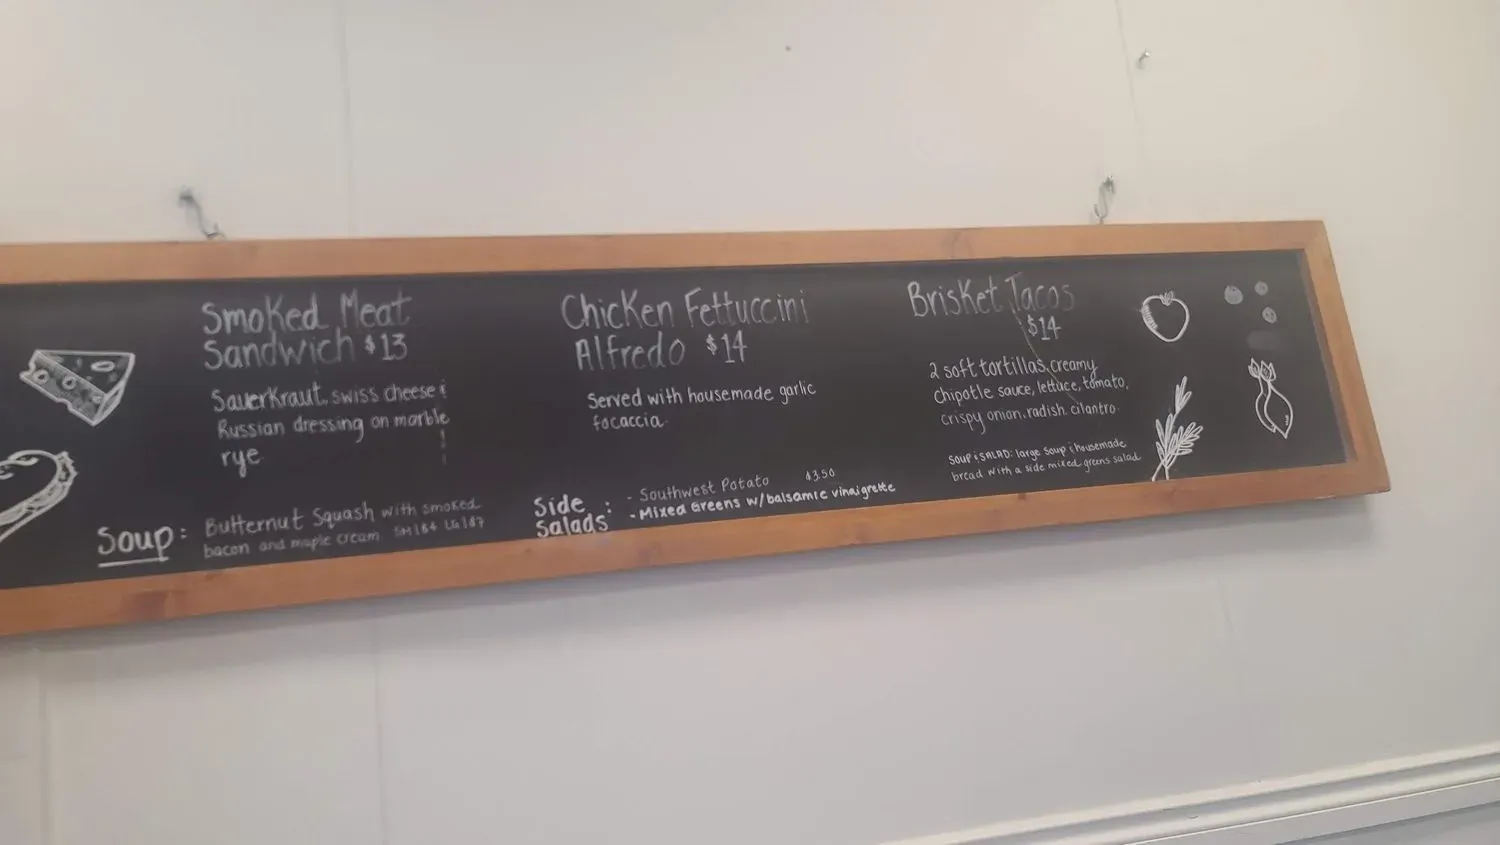 Smoked Meat
Sandwich $13
Sauerkraut, swiss cheese &
Russian dressing on marble
rye
Chicken Fettuccini
Alfredo $14
Served with housemade garlic
focaccia.
Brisket Tacos
$14
2 soft tortillas, creamy
chipotle sauce, lettuce, tomato,
crispy onion, radish, cilantro.
Soup & SALAD: large Soup & housemade
bread with a side mixed greens salad
Soup: Butternut Squash with smoked
bacon and maple cream SM|$4 LG|$7
Side Salads:
- Southwest Potato $3.50
- Mixed Greens w/balsamic vinaigrette